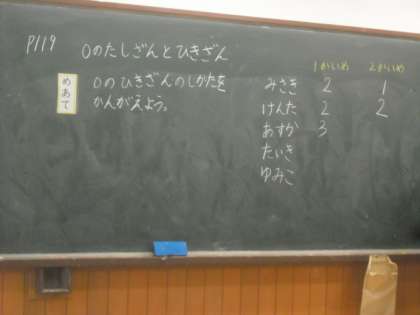 P119
0のたしざんとひきざん
めあて
0のひきざんのしかたを
かんがえよう。
1かいめ 2かいめ
みさき 2 1
けんた 2 2
あすか 3
たいき
ゆみこ